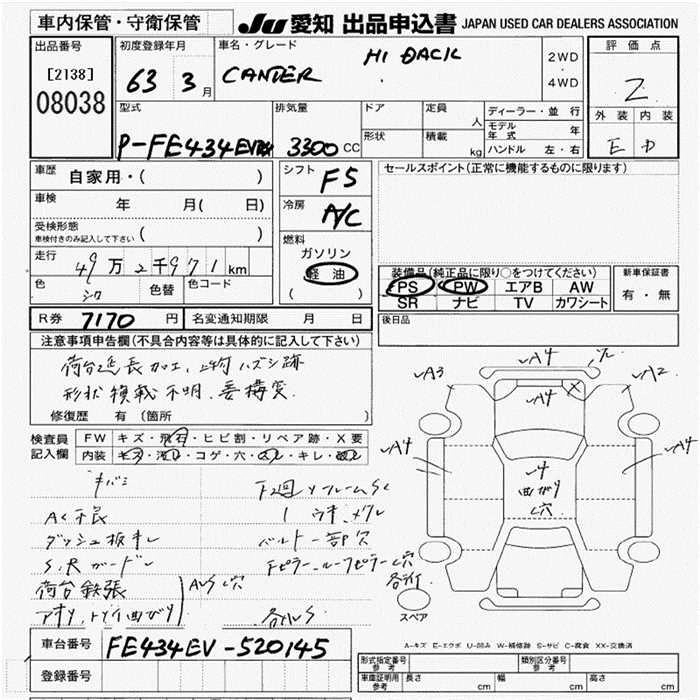 車内保管・守衛保管
JU 愛知 出品申込書 JAPAN USED CAR DEALERS ASSOCIATION
出品番号
[2138]
08038
初度登録年月
63 3月
車名・グレード
CANTER
HI BACK
2WD
・
4WD
評価点
2
外装 内装
E D
型式
P-FE434EV改
排気量
3300 CC
ドア
形状
定員
人
積載
kg
ディーラー・並行
モデル年式 年
ハンドル 左・右
車歴
自家用・( )
車検
年 月( 日)
受検形態
車検付きのみ記入して下さい ( )
走行
49万2千971km
色
シロ
色替
色コード
シフト
F5
冷房
A/C
燃料
ガソリン
軽油
( )
セールスポイント(正常に機能するものに限ります)
装備品(純正品に限り○をつけてください)
PS PW エアB AW
SR ナビ TV カワシート
新車保証書
有・無
R券 7170 円 名変通知期限 月 日
後日品
注意事項申告欄(不具合内容等は具体的に記入して下さい)
荷台延長加工、上物ハズシ跡
形状積載不明、要構変
修復歴 有(箇所
検査員記入欄
FW キズ・飛石・ヒビ割・リペア跡・X要
内装 キズ・汚レ・コゲ・穴・スレ・キレ・破レ
キバミ
AC不良
ダッシュ板キレ
荷台鉄張
アオリ、トリイ曲がり
ベルト一部欠
車台番号 FE434EV-520145
登録番号
A3
A4
A4
A2
A4
A4
曲がり
穴
スペア
A-キズ E-エクボ U-凹み W-補修跡 S-サビ C-腐食 XX-交換済
形式指定番号参考
類別区分番号参考
車庫証明用参考 長さ cm 幅 cm 高さ cm